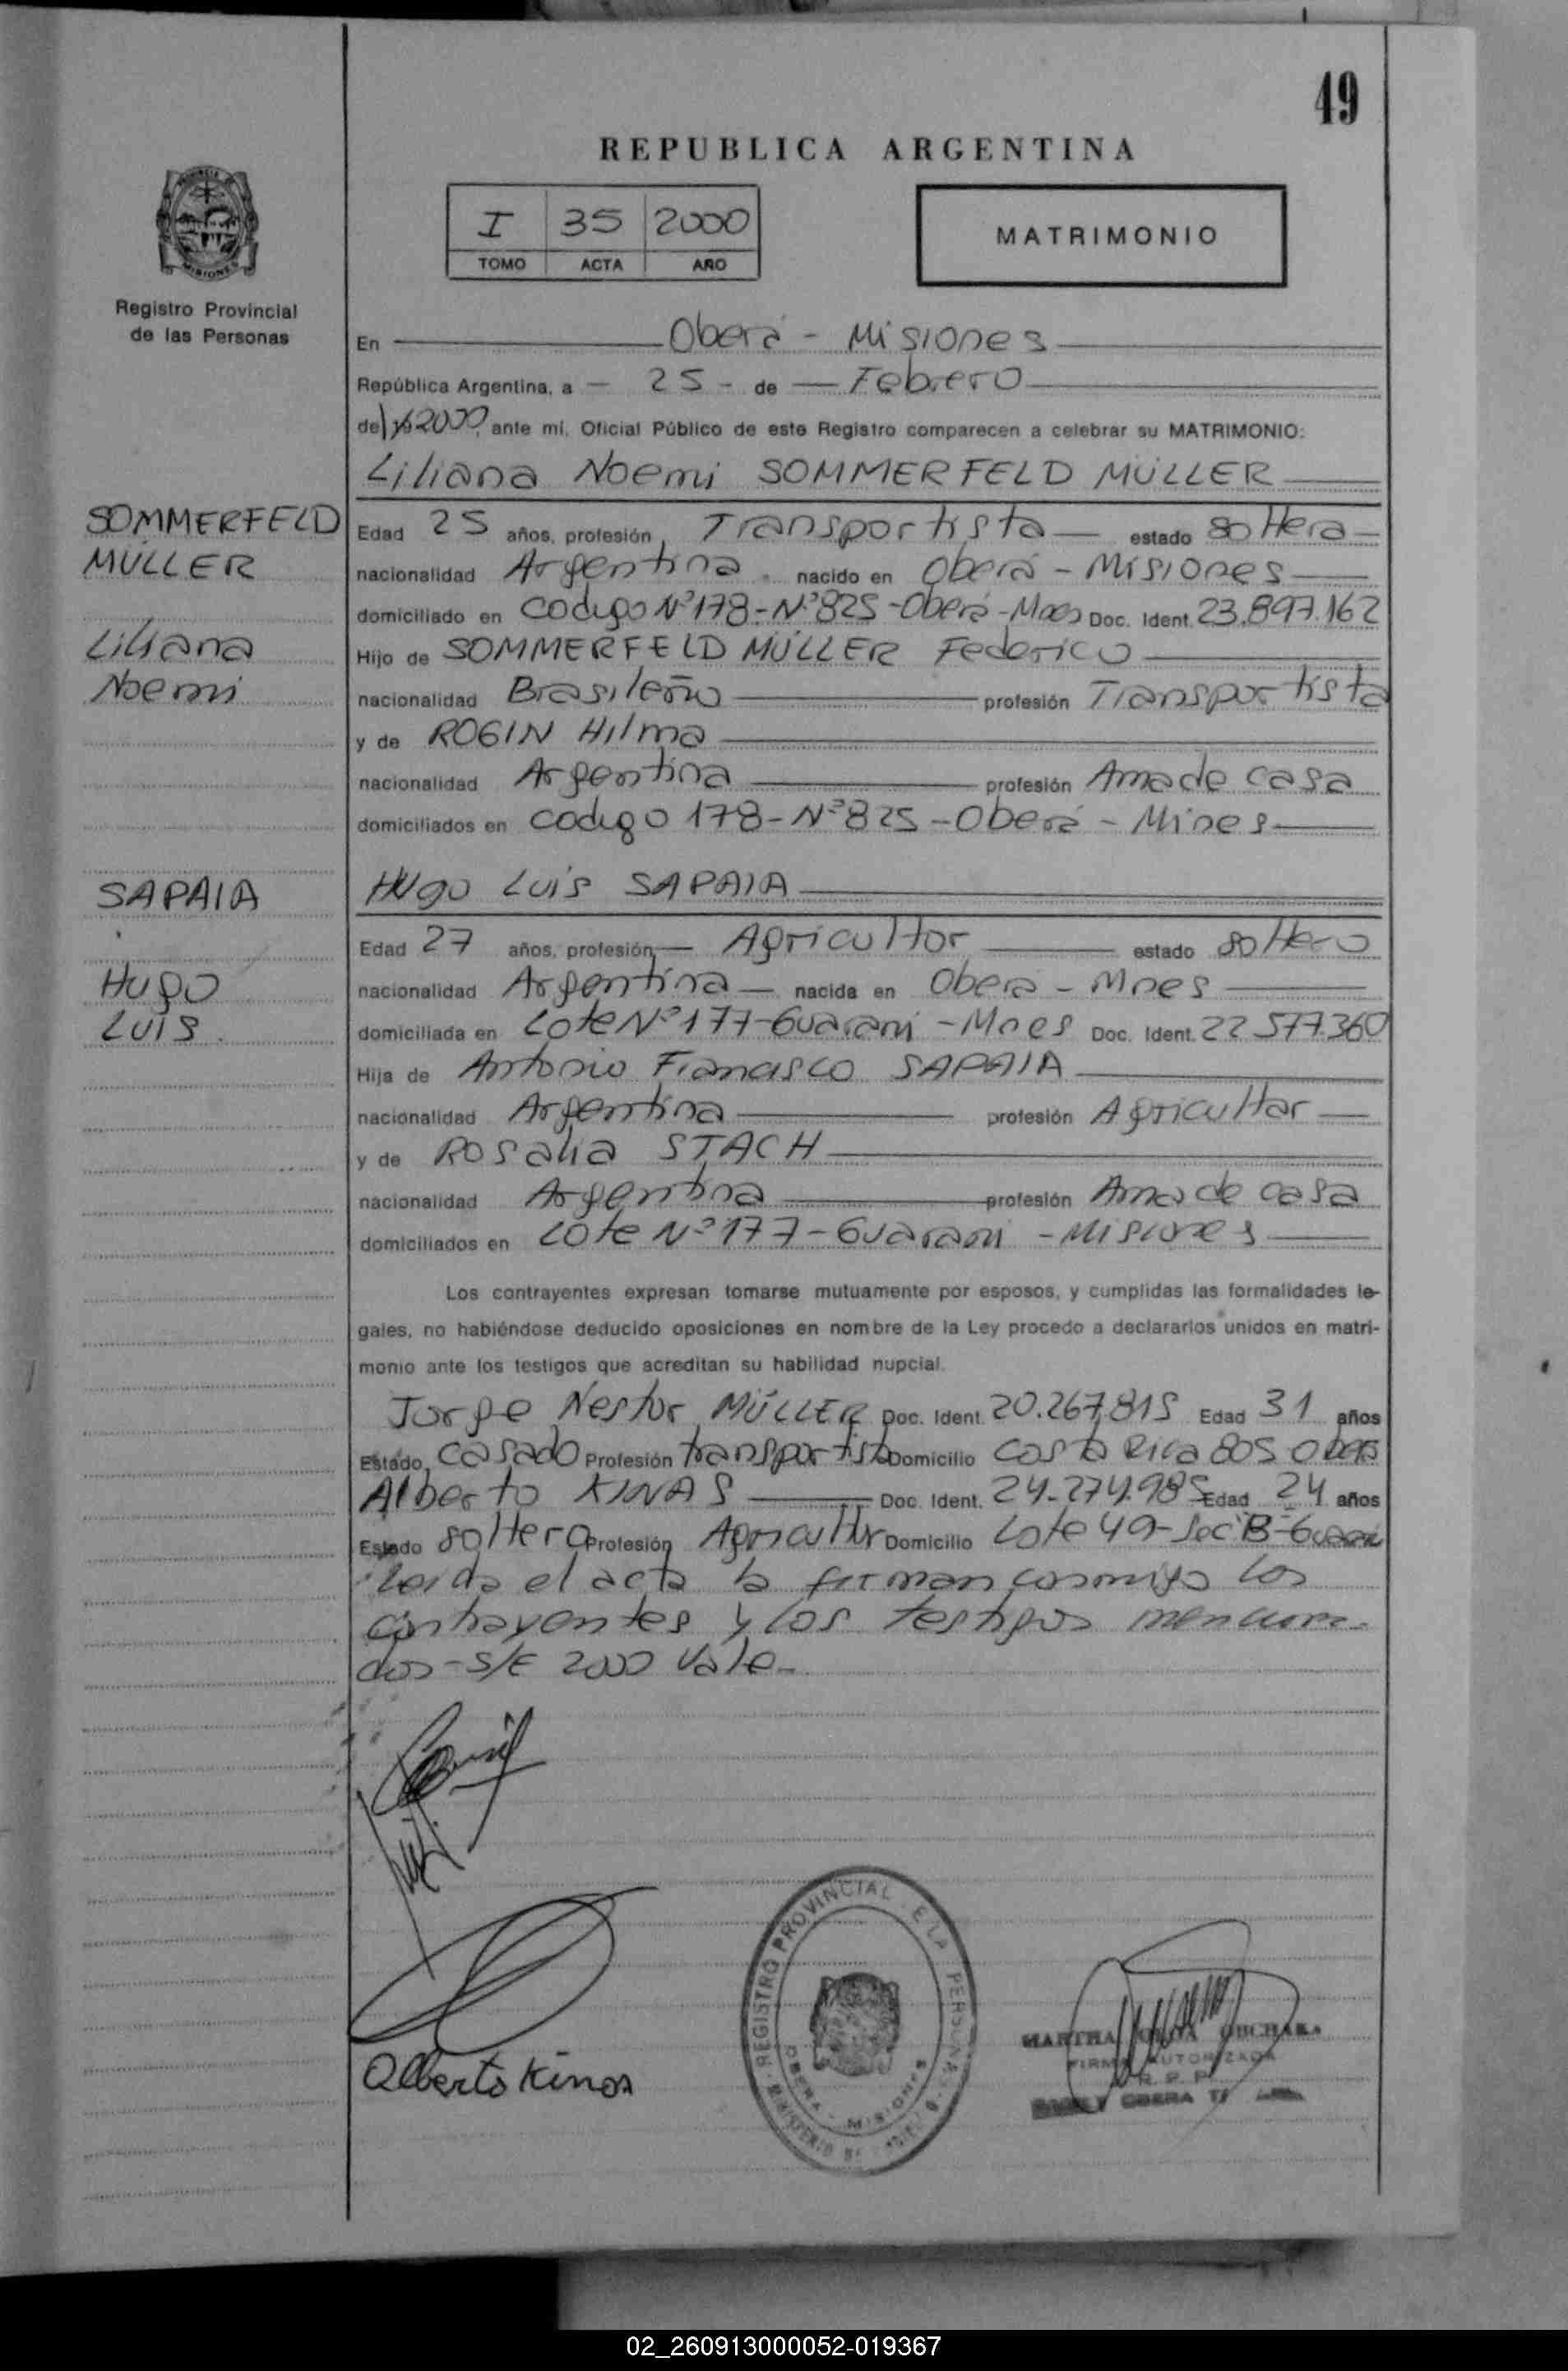 49
REPUBLICA ARGENTINA
I 35 2000
TOMO ACTA AÑO
MATRIMONIO
PROVINCIA DE
MISIONES
Registro Provincial
de las Personas
En Oberá - Misiones
República Argentina, a 25 - de Febrero
de 2000, ante mí, Oficial Público de este Registro comparecen a celebrar su MATRIMONIO:
Liliana Noemi SOMMERFELD MÜLLER
SOMMERFELD
MÜLLER
Liliana
Noemi
Edad 25 años, profesión Transportista estado soltera
nacionalidad Argentina nacido en Oberá - Misiones
domiciliado en codigo Nº178 - Nº825 - Oberá - Mnes Doc. Ident. 23.897.162
Hijo de SOMMERFELD MÜLLER Federico
nacionalidad Brasileño profesión Transportista
y de ROGIN Hilma
nacionalidad Argentina profesión Ama de casa
domiciliados en codigo 178 - Nº825 - Oberá - Mines
SAPAIA
Hugo
Luis
Hugo Luis SAPAIA
Edad 27 años, profesión Agricultor estado soltero
nacionalidad Argentina nacida en Oberá - Mnes
domiciliada en Lote Nº177 - Guarani - Mnes Doc. Ident. 22.577.360
Hija de Antonio Francisco SAPAIA
nacionalidad Argentina profesión Agricultor
y de Rosalia STACH
nacionalidad Argentina profesión Ama de casa
domiciliados en Lote Nº177 - Guarani - Misiones
Los contrayentes expresan tomarse mutuamente por esposos, y cumplidas las formalidades le-
gales, no habiéndose deducido oposiciones en nombre de la Ley procedo a declararlos unidos en matri-
monio ante los testigos que acreditan su habilidad nupcial.
Jorge Nestor MÜLLER Doc. Ident. 20.267.815 Edad 31 años
Estado casado Profesión transportista Domicilio Costa Rica 805 Oberá
Alberto KINAS Doc. Ident. 24.274.985 Edad 24 años
Estado soltero Profesión Agricultor Domicilio Lote 49 - Sec B - Guarani
Leida el acta la firman conmigo los
contrayentes y los testigos menciona-
dos - S/E 2000 Vale -
Alberto Kinas
REGISTRO PROVINCIAL DE LA PERSONAS
OBERA - MISIONES
MARTHA
FIRMA AUTORIZADA
R. P. P.
OBERA
02_260913000052-019367